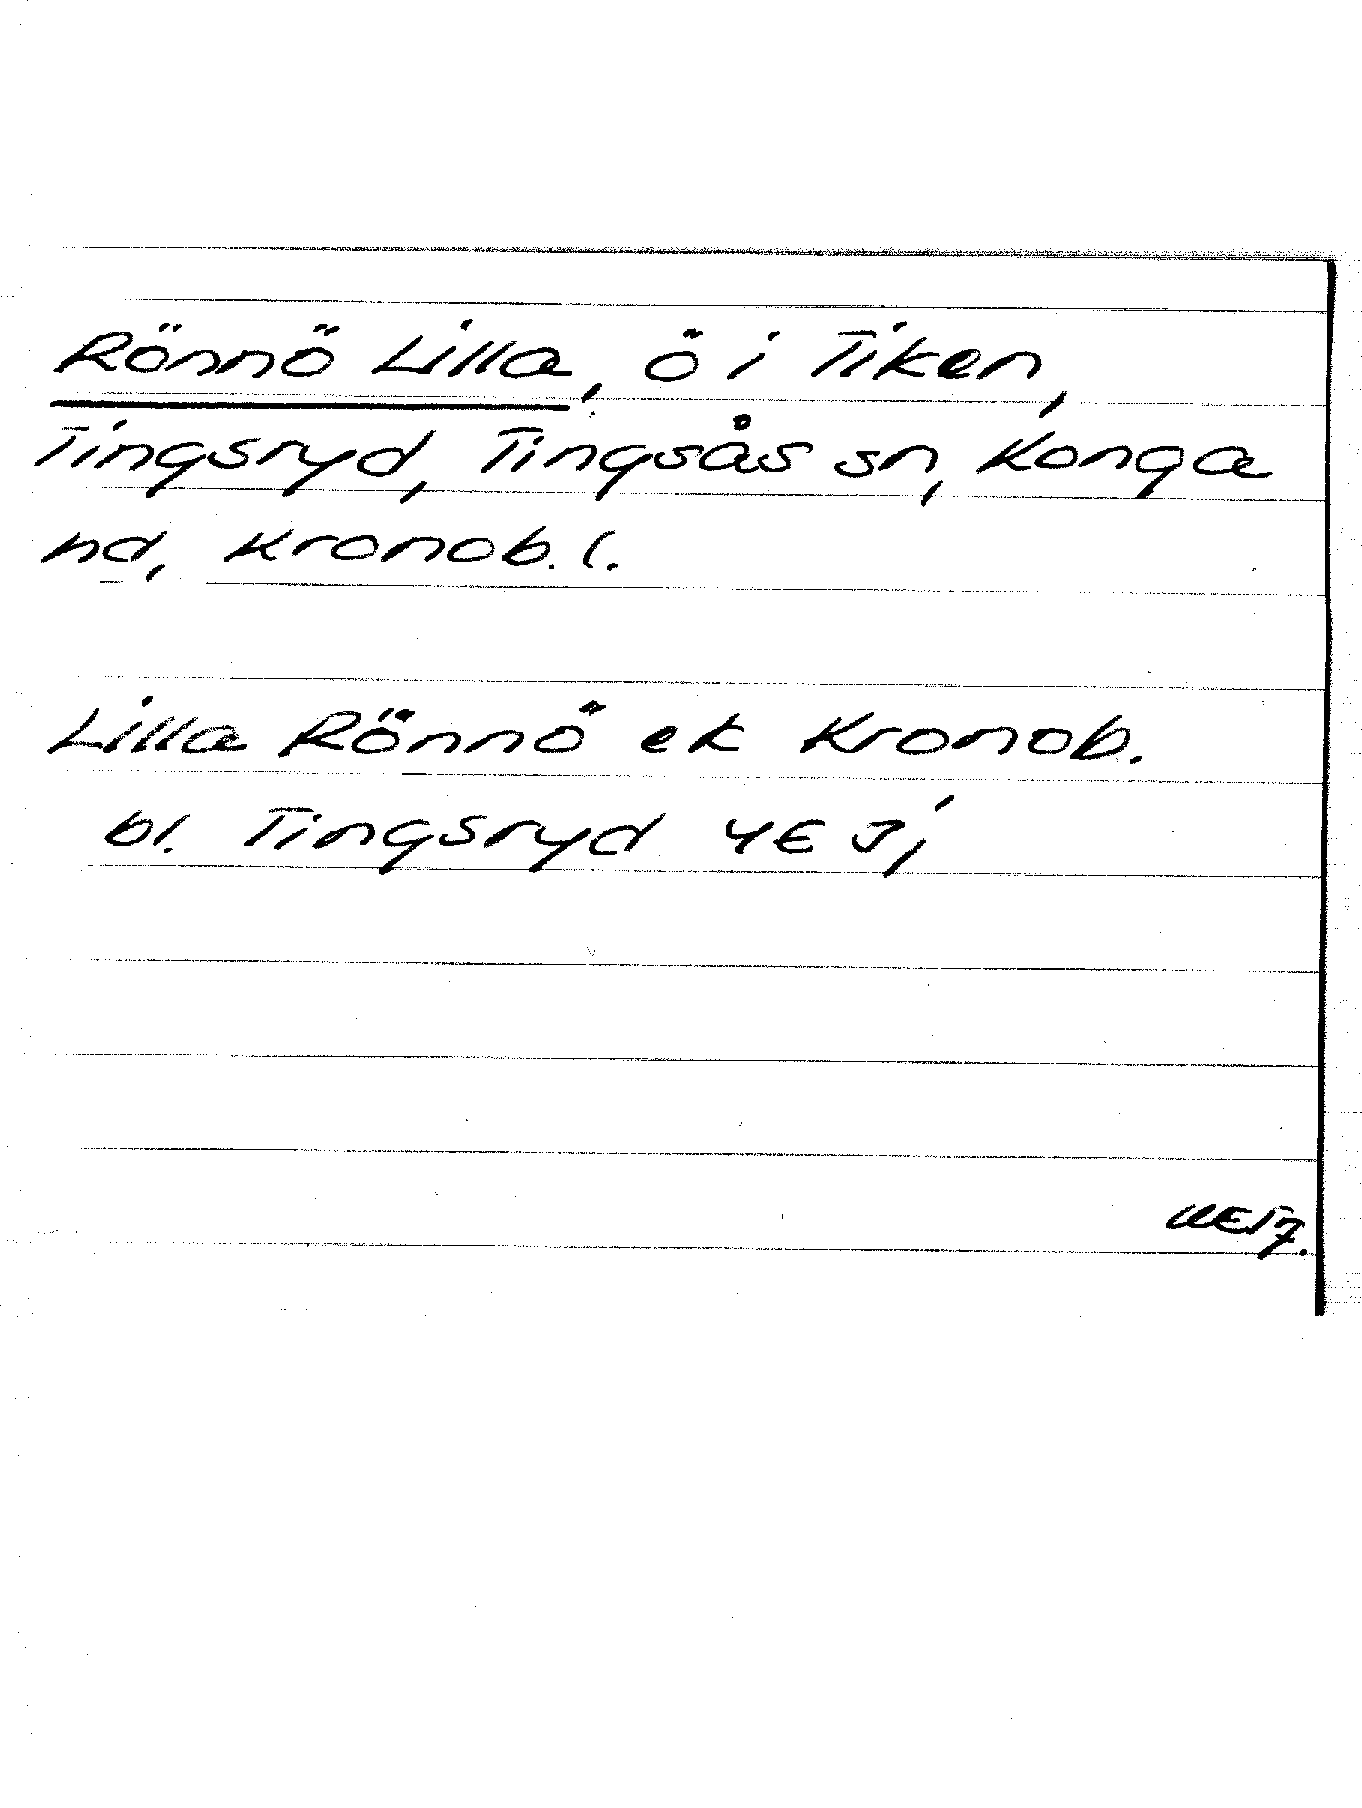 Rönnö Lilla, ö i Tiken,
Tingsryd, Tingsås sn, Konga
hd, Kronob. l.
Lilla Rönnö ek Kronob.
bl. Tingsryd 4E Jj